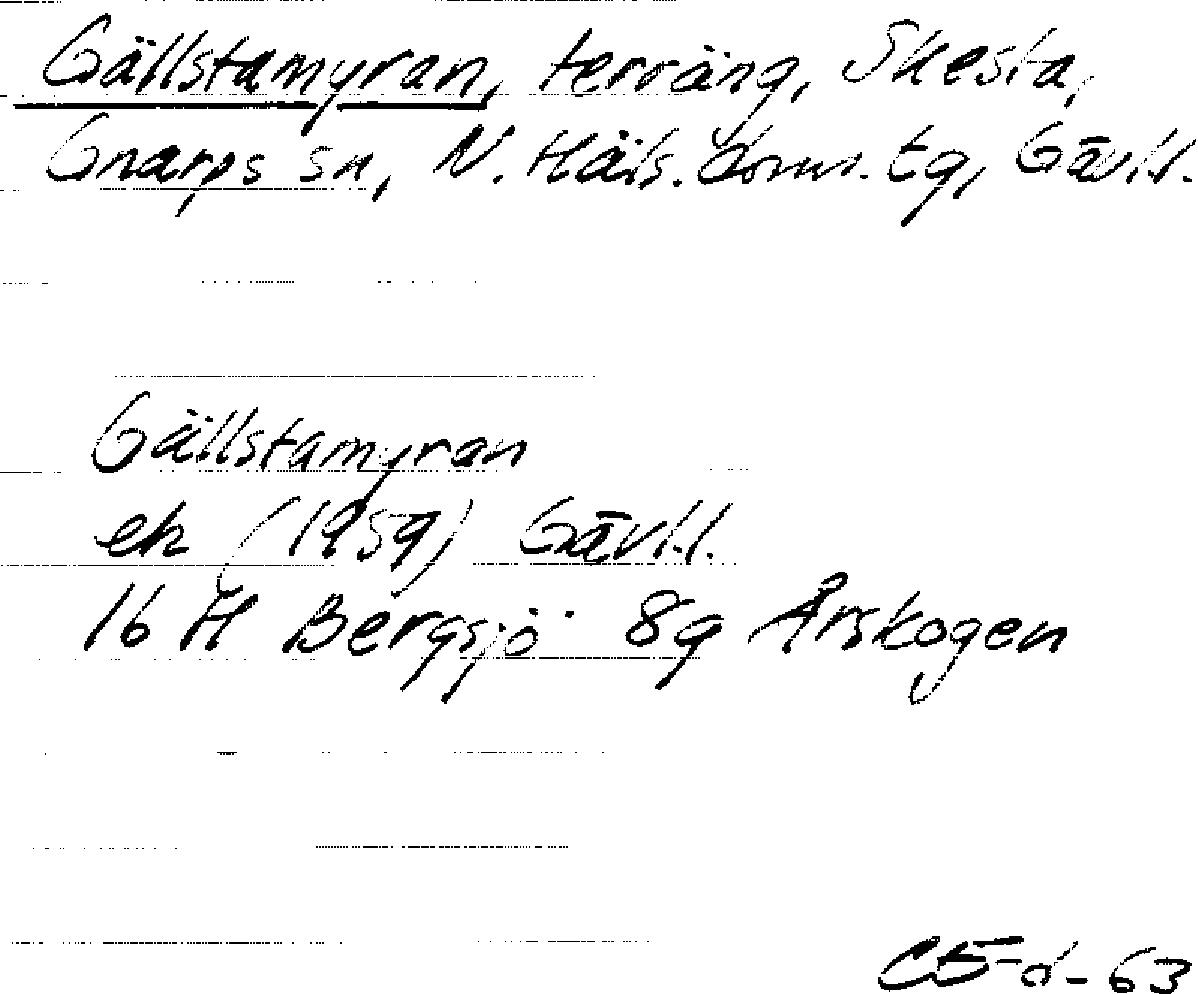 Gällstamyran, terräng, Skesta,
Gnarps sn, N. Häls. doms. tg, Gävl.l.
Gällstamyran
ek (1959) Gävl.l.
16 H Bergsjö 8g Årskogen